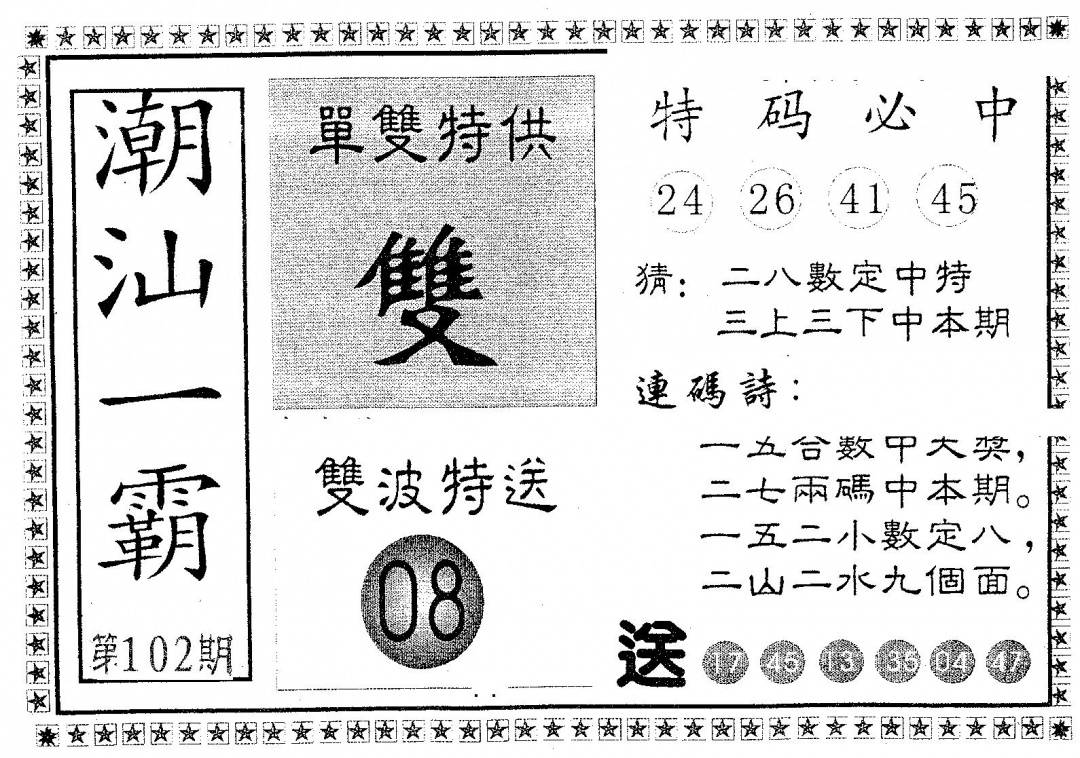 潮汕一霸
第102期
單雙特供
雙
雙波特送
08
特码必中
24 26 41 45
猜：二八數定中特
三上三下中本期
連碼詩：
一五合數中大獎，
二七兩碼中本期。
一五二小數定八，
二山二水九個面。
送 17 45 13 35 04 47